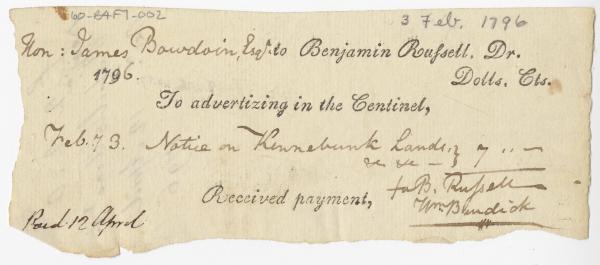 60-BAF1-002
3 Feb. 1796
Hon: James Bowdoin, Esqr. to Benjamin Russell, Dr.
1796. Dolls. Cts.
To advertizing in the Centinel,
Feb. 73. Notice on Kennebunk Lands, 7 " —
&c &c —
Received payment, for B. Russell
Wm. Burdick
Paid 12 April